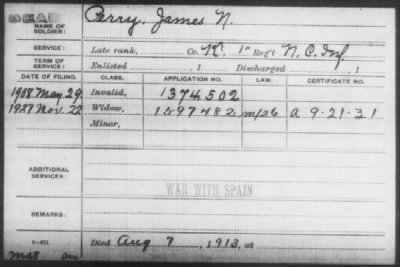 DEAD
NAME OF SOLDIER: Perry, James N.
SERVICE: Late rank, Co. K, 1" Reg't N.C. Inf.
TERM OF SERVICE: Enlisted , 1 Discharged , 1
DATE OF FILING. CLASS. APPLICATION NO. LAW. CERTIFICATE NO.
1908 May 29 Invalid, 1374502
1927 Nov. 22 Widow, 1597482 A 9-21-31
Minor,
ADDITIONAL SERVICES:
WAR WITH SPAIN
REMARKS:
Died Aug 7, 1913, at